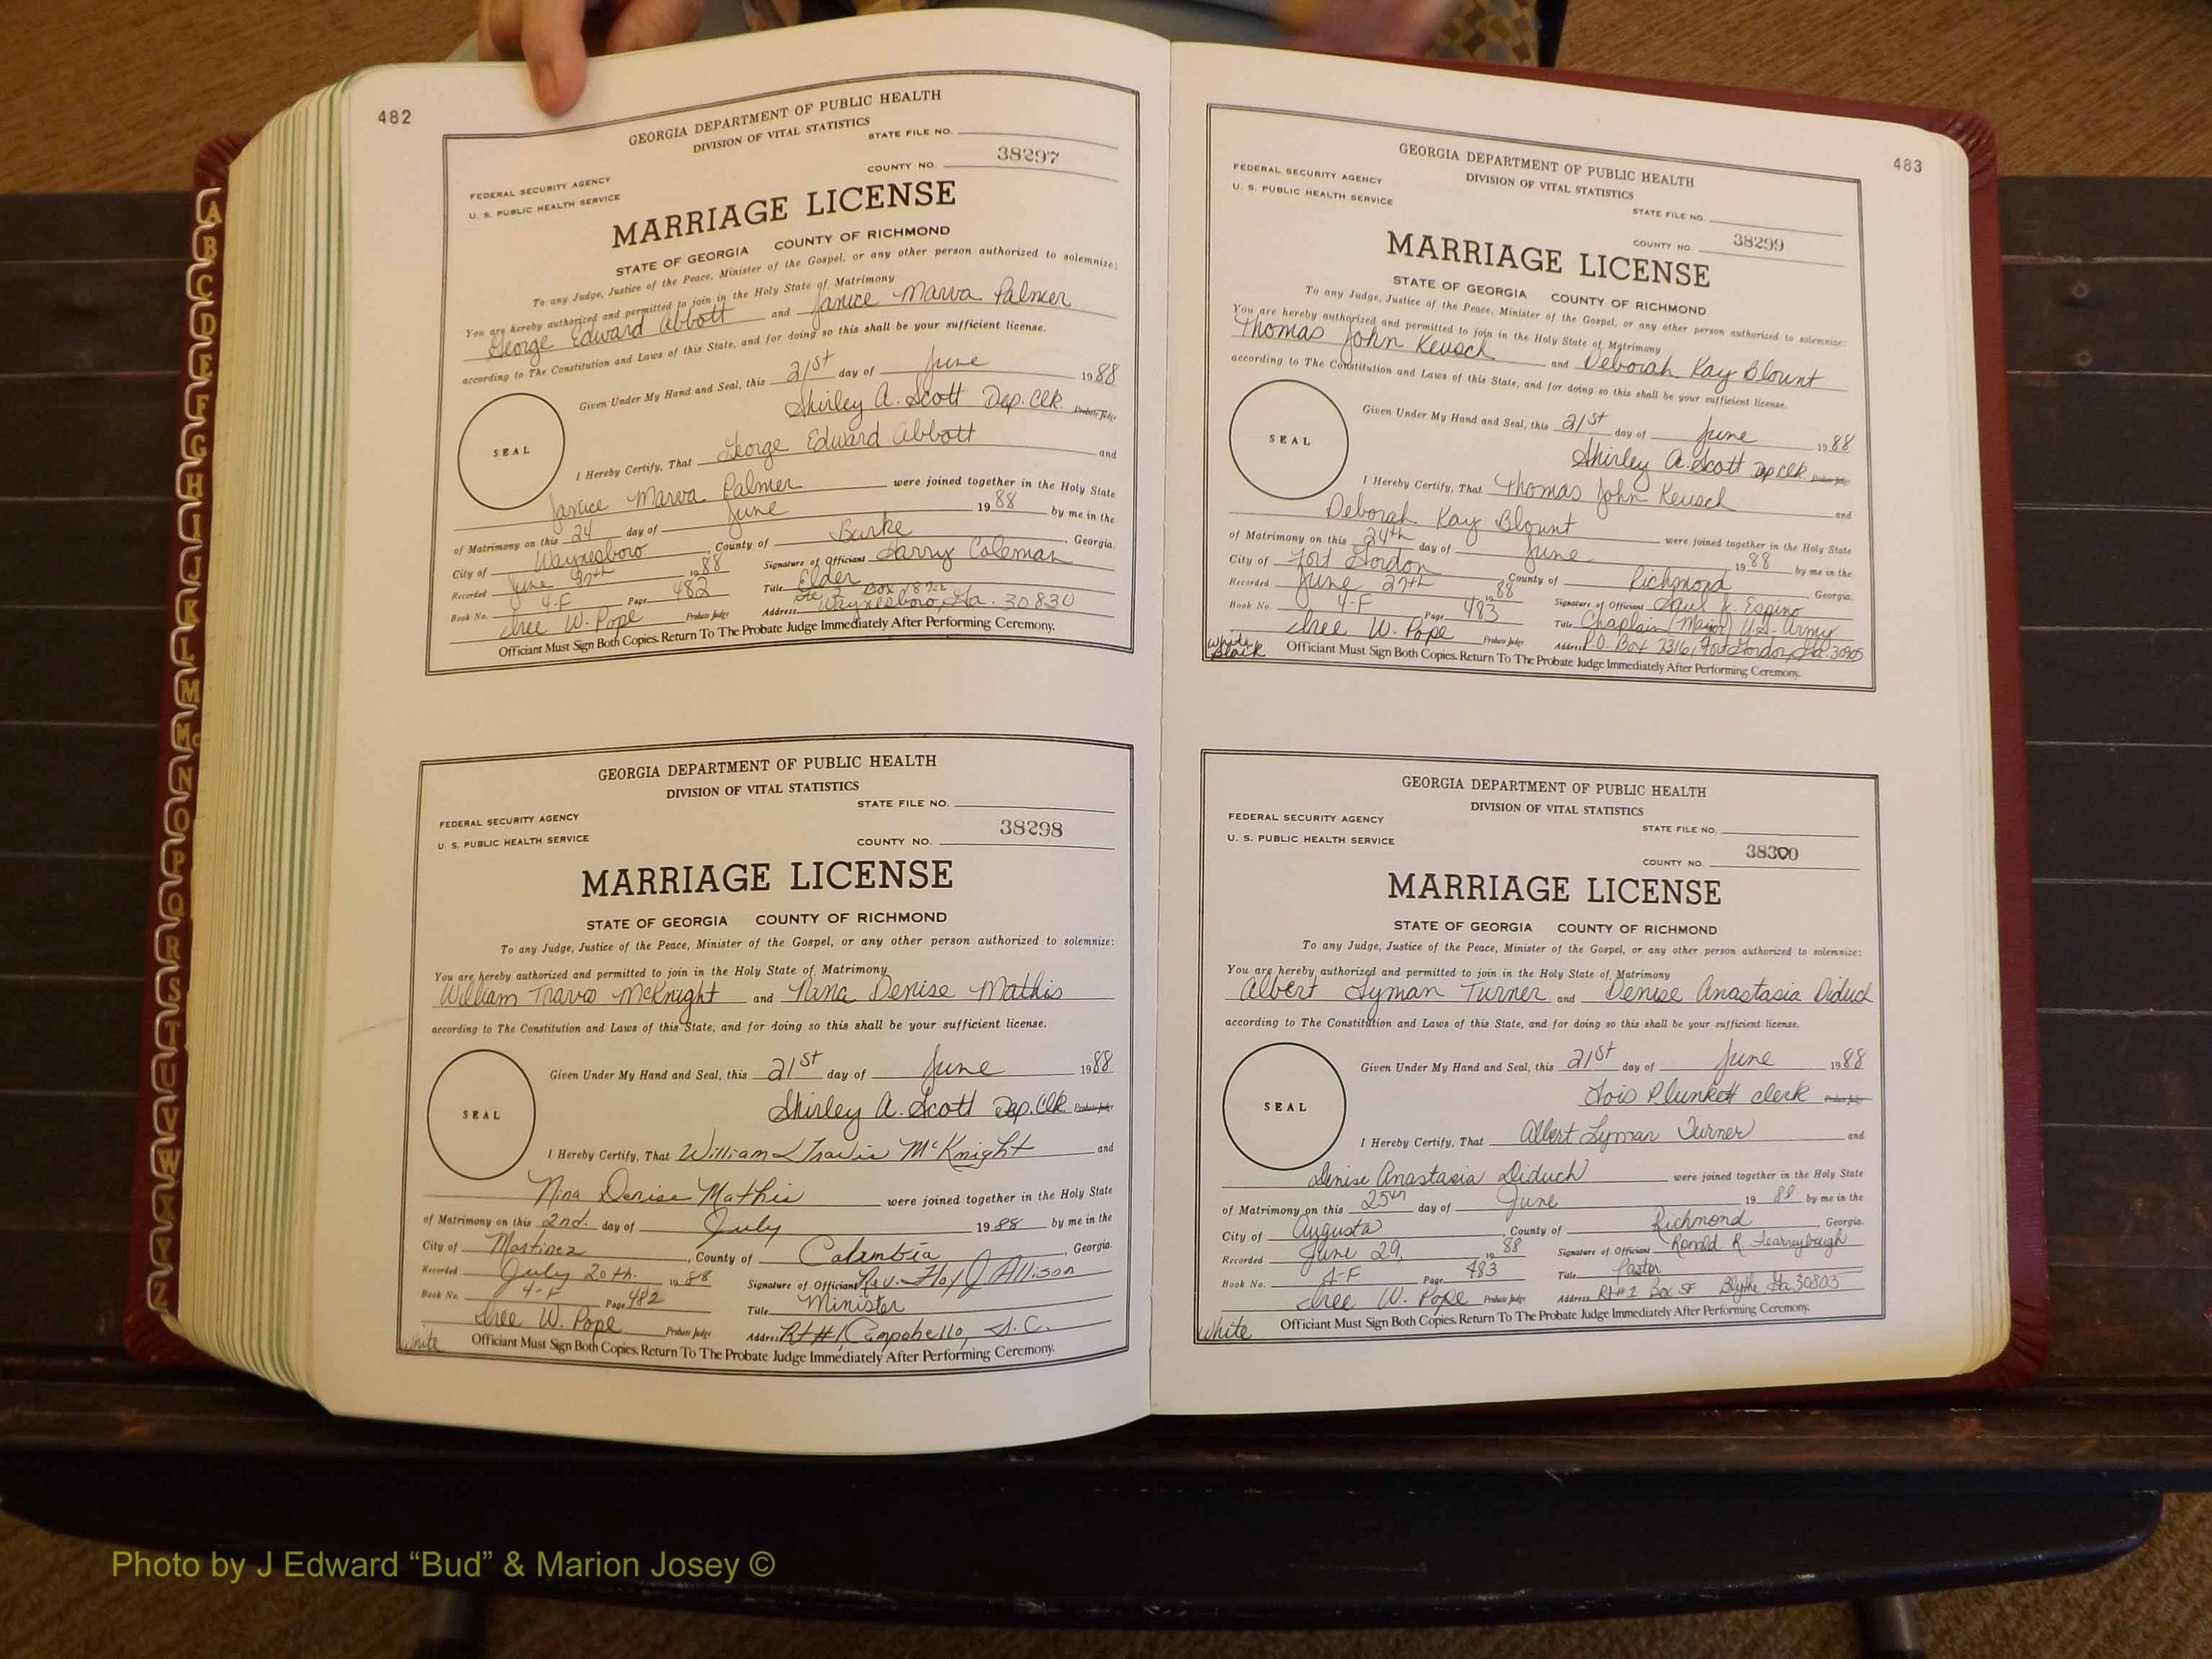 482
GEORGIA DEPARTMENT OF PUBLIC HEALTH
DIVISION OF VITAL STATISTICS
STATE FILE NO.
38297
COUNTY NO.
FEDERAL SECURITY AGENCY
U. S. PUBLIC HEALTH SERVICE
MARRIAGE LICENSE
STATE OF GEORGIA COUNTY OF RICHMOND
To any Judge, Justice of the Peace, Minister of the Gospel, or any other person authorized to solemnize:
You are hereby authorized and permitted to join in the Holy State of Matrimony
George Edward Abbott and Janice Marva Palmer
according to The Constitution and Laws of this State, and for doing so this shall be your sufficient license.
Given Under My Hand and Seal, this 21st day of June 1988
Shirley A. Scott Dep. Clk. Probate Judge
SEAL
I Hereby Certify, That George Edward Abbott and
Janice Marva Palmer were joined together in the Holy State
of Matrimony on this 24 day of June 1988 by me in the
City of Waynesboro, County of Burke, Georgia.
Recorded June 1988 Signature of Officiant Harry Coleman
Book No. 4-F Page 482 Title Elder
Iree W. Pope Probate Judge Address Waynesboro, Ga. 30830
Officiant Must Sign Both Copies. Return To The Probate Judge Immediately After Performing Ceremony.
GEORGIA DEPARTMENT OF PUBLIC HEALTH
DIVISION OF VITAL STATISTICS
STATE FILE NO.
38298
COUNTY NO.
FEDERAL SECURITY AGENCY
U. S. PUBLIC HEALTH SERVICE
MARRIAGE LICENSE
STATE OF GEORGIA COUNTY OF RICHMOND
To any Judge, Justice of the Peace, Minister of the Gospel, or any other person authorized to solemnize:
You are hereby authorized and permitted to join in the Holy State of Matrimony
William Travis McKnight and Nina Denise Mathis
according to The Constitution and Laws of this State, and for doing so this shall be your sufficient license.
Given Under My Hand and Seal, this 21st day of June 1988
Shirley A. Scott Dep. Clk. Probate Judge
SEAL
I Hereby Certify, That William Travis McKnight and
Nina Denise Mathis were joined together in the Holy State
of Matrimony on this 2nd. day of July 1988 by me in the
City of Martinez, County of Columbia, Georgia.
Recorded July 20th. 1988 Signature of Officiant Rev. Floy J Allison
Book No. 4-F Page 482 Title Minister
Iree W. Pope Probate Judge Address Rt #1 Campobello, S.C.
White Officiant Must Sign Both Copies. Return To The Probate Judge Immediately After Performing Ceremony.
483
GEORGIA DEPARTMENT OF PUBLIC HEALTH
DIVISION OF VITAL STATISTICS
FEDERAL SECURITY AGENCY
U. S. PUBLIC HEALTH SERVICE
STATE FILE NO.
COUNTY NO. 38299
MARRIAGE LICENSE
STATE OF GEORGIA COUNTY OF RICHMOND
To any Judge, Justice of the Peace, Minister of the Gospel, or any other person authorized to solemnize:
You are hereby authorized and permitted to join in the Holy State of Matrimony
Thomas John Keusch and Deborah Kay Blount
according to The Constitution and Laws of this State, and for doing so this shall be your sufficient license.
Given Under My Hand and Seal, this 21st day of June 1988
Shirley A. Scott Dep Clk. Probate Judge
SEAL
I Hereby Certify, That Thomas John Keusch and
Deborah Kay Blount were joined together in the Holy State
of Matrimony on this 24th day of June 1988 by me in the
City of Fort Gordon, County of Richmond, Georgia.
Recorded June 27th 1988 Signature of Officiant Espino
Book No. 4-F Page 483 Title Chaplain (Major) U.S. Army
Iree W. Pope Probate Judge Address P.O. Box 7316, Fort Gordon, Ga. 30905
White Black Officiant Must Sign Both Copies. Return To The Probate Judge Immediately After Performing Ceremony.
GEORGIA DEPARTMENT OF PUBLIC HEALTH
DIVISION OF VITAL STATISTICS
FEDERAL SECURITY AGENCY
U. S. PUBLIC HEALTH SERVICE
STATE FILE NO.
COUNTY NO. 38300
MARRIAGE LICENSE
STATE OF GEORGIA COUNTY OF RICHMOND
To any Judge, Justice of the Peace, Minister of the Gospel, or any other person authorized to solemnize:
You are hereby authorized and permitted to join in the Holy State of Matrimony
Albert Lyman Turner and Denise Anastasia Diduch
according to The Constitution and Laws of this State, and for doing so this shall be your sufficient license.
Given Under My Hand and Seal, this 21st day of June 1988
Lois Plunkett clerk Probate Judge
SEAL
I Hereby Certify, That Albert Lyman Turner and
Denise Anastasia Diduch were joined together in the Holy State
of Matrimony on this 25th day of June 1988 by me in the
City of Augusta, County of Richmond, Georgia.
Recorded June 29, 1988 Signature of Officiant Ronald R. Fearneyhough
Book No. 4-F Page 483 Title Pastor
Iree W. Pope Probate Judge Address Rt#1 Box 5F Blythe Ga 30805
White Officiant Must Sign Both Copies. Return To The Probate Judge Immediately After Performing Ceremony.
A
B
C
D
E
F
G
H
I
J
K
L
M
Mc
N
O
P
Q
R
S
T
U
V
W
X
Y
Z
Photo by J Edward “Bud” & Marion Josey ©